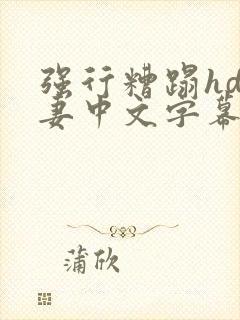 强行糟蹋hd
妻中文字幕
蒲欣